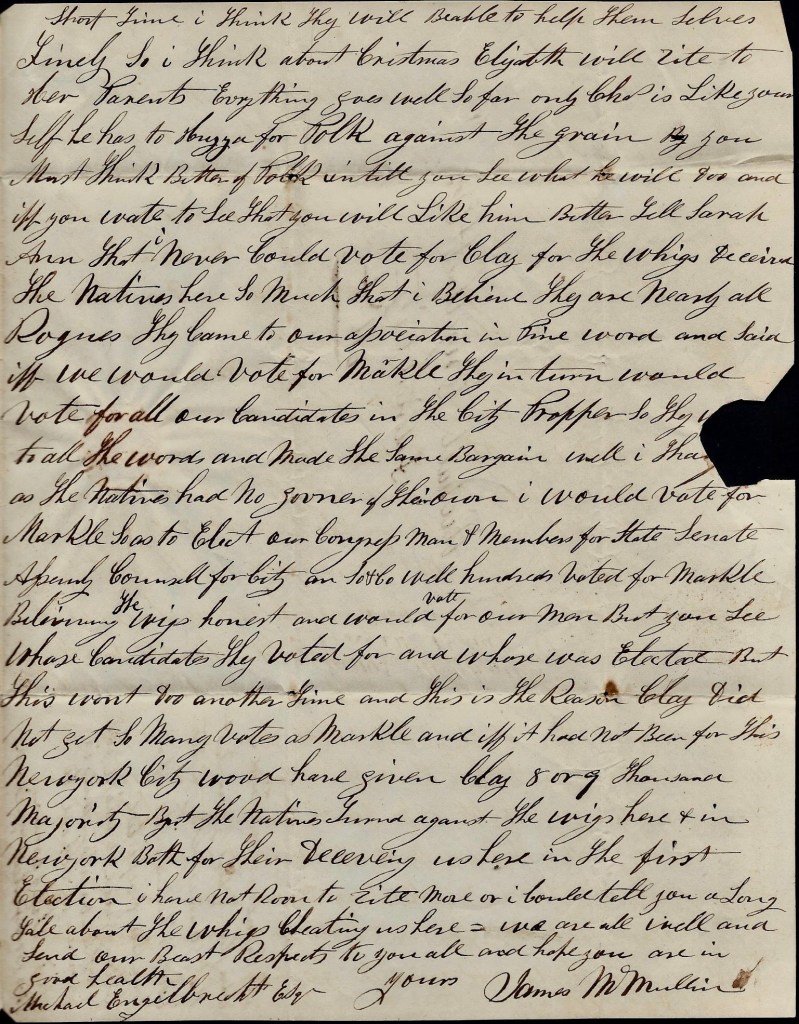 Short Time i Think Thy will Beable to help Them Selves
Finely So i Think about Cristmas Elizabth will rite to
Her Parents Evrything goes well So far only Chs is Like your
Self he has to Huzza for Polk against The grain By you
Must Think Better of Polk intill you See what he will Doo and
iff you wate to See That you will Like him Better Tell Sarah
Ann That i Never Could vote for Clay for The whigs Deceived
The Natives here So Much That i Believe They are Nearly all
Rogues Thy Came to our association in Fine word and Said
iff we would vote for Markle They in turn would
vote for all our Candidates in The City Propper So Thy
to all The words and Made The Same Bargain well i
as The Natives had No govner of Their own i would vote for
Markle So as to Elect our Congress Man & Members for State Senate
Assemly Counsell for City an So & So well hundreds voted for Markle
Beliveing The wigs honest and would vote for our Men But you See
whose Candidates They voted for and whose was Elected But
This wont Doo another Time and This is The Reason Clay Did
Not get So Many votes as Markle and iff it had Not Been for This
Newyork City wood have given Clay 8 or 9 Thousand
Majority But The Natives Turnd against The wigs here & in
Newyork Both for Their Deceveing us here in The first
Election i have Not Room to rite More or i Could tell you a Long
Tale about The whigs Cheating us here = we are all well and
Send our Beast Respects to you all and hope you are in
good health yours James McMullin
Michael Engelbrecht Esqr